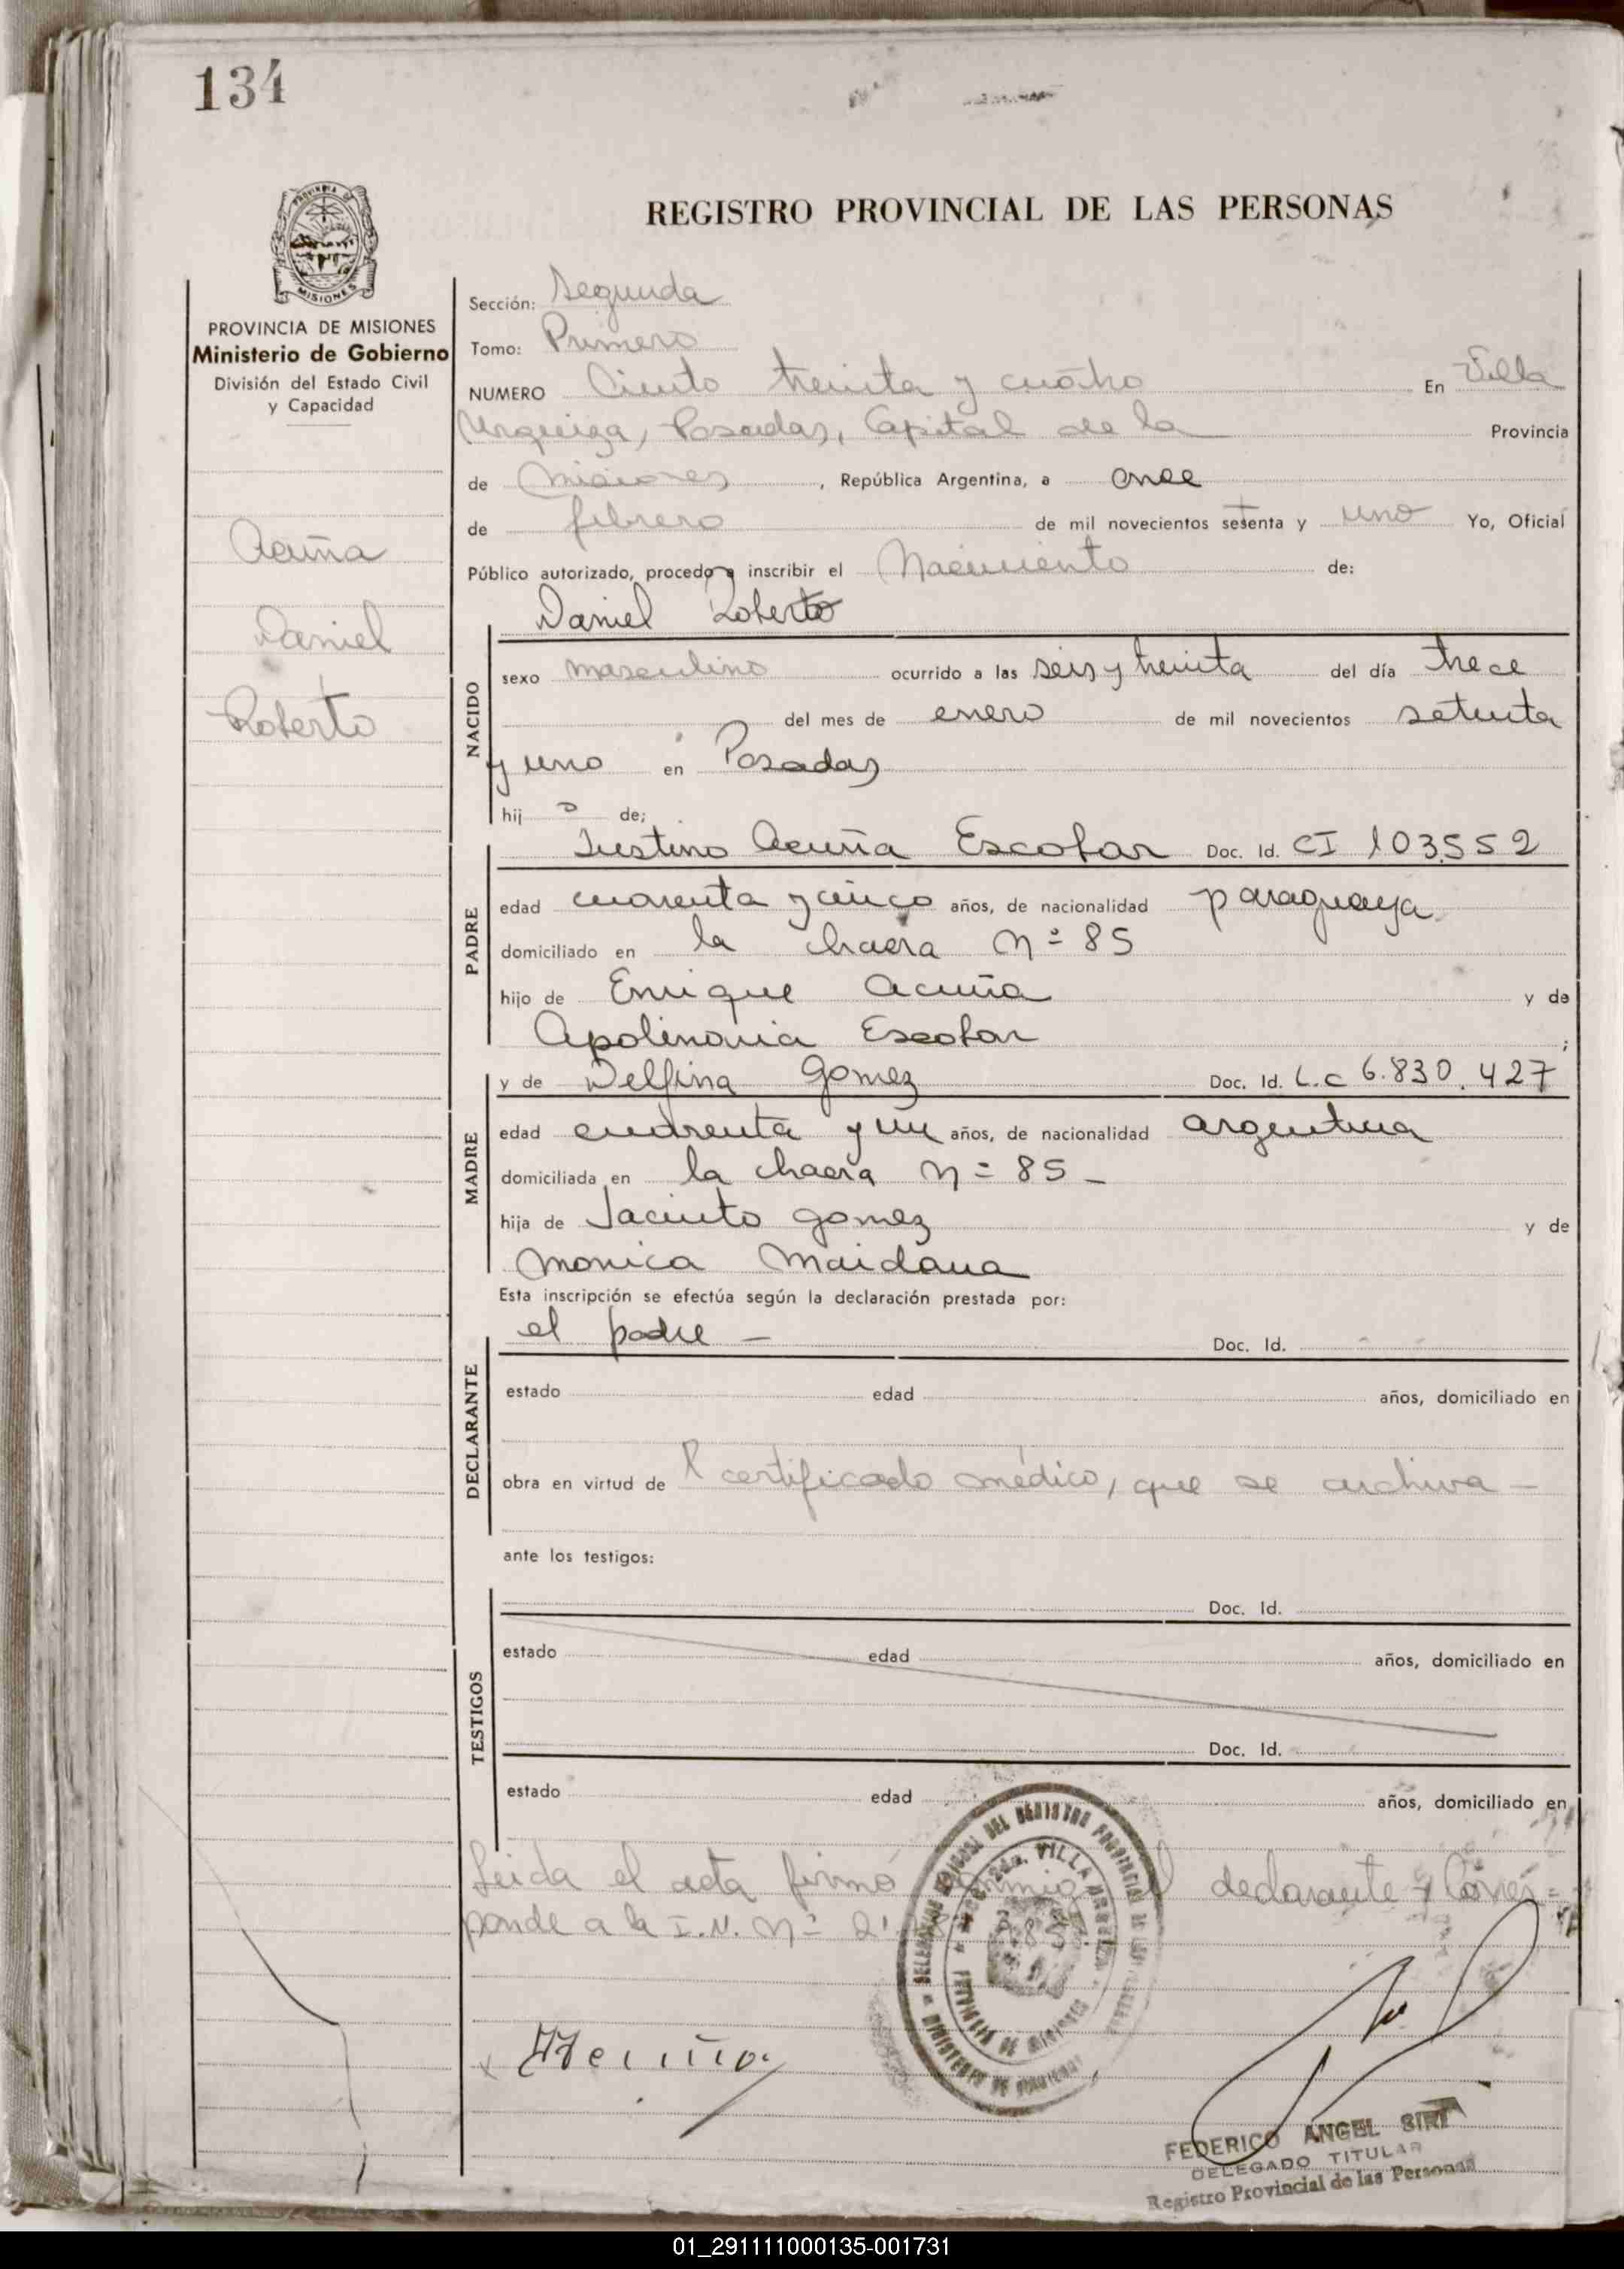 134
PROVINCIA DE MISIONES
REGISTRO PROVINCIAL DE LAS PERSONAS
PROVINCIA DE MISIONES
Ministerio de Gobierno
División del Estado Civil
y Capacidad
Acuña
Daniel
Roberto
Sección: Segunda
Tomo: Primero
NUMERO Ciento treinta y cuatro En Villa
Urquiza, Posadas, Capital de la Provincia
de Misiones, República Argentina, a once
de febrero de mil novecientos setenta y uno Yo, Oficial
Público autorizado, procedo a inscribir el Nacimiento de:
Daniel Roberto
NACIDO
sexo masculino ocurrido a las seis y treinta del día trece
del mes de enero de mil novecientos setenta
y uno en Posadas
hij o de;
Justino Acuña Escobar Doc. Id. CI 103.552
PADRE
edad cuarenta y cinco años, de nacionalidad paraguaya
domiciliado en la chacra Nº 85
hijo de Enrique Acuña y de
Apolinaria Escobar ;
y de Delfina Gomez Doc. Id. L.C 6.830.427
MADRE
edad cuarenta y un años, de nacionalidad argentina
domiciliada en la chacra Nº 85 -
hija de Jacinto Gomez y de
Monica Maidana
Esta inscripción se efectúa según la declaración prestada por:
el padre - Doc. Id.
DECLARANTE
estado edad años, domiciliado en
obra en virtud de certificado médico, que se archiva -
ante los testigos:
Doc. Id.
TESTIGOS
estado edad años, domiciliado en
Doc. Id.
estado edad años, domiciliado en
Leida el acta firmó conmigo el declarante y Corres=
ponde a la I.N. Nº
DEL REGISTRO PROVINCIAL DE LAS
MINISTERIO DE GOBIERNO
VILLA URQUIZA
PROVINCIA DE MISIONES
x Acuña
FEDERICO ANGEL SIRI
DELEGADO TITULAR
Registro Provincial de las Personas
01_291111000135-001731